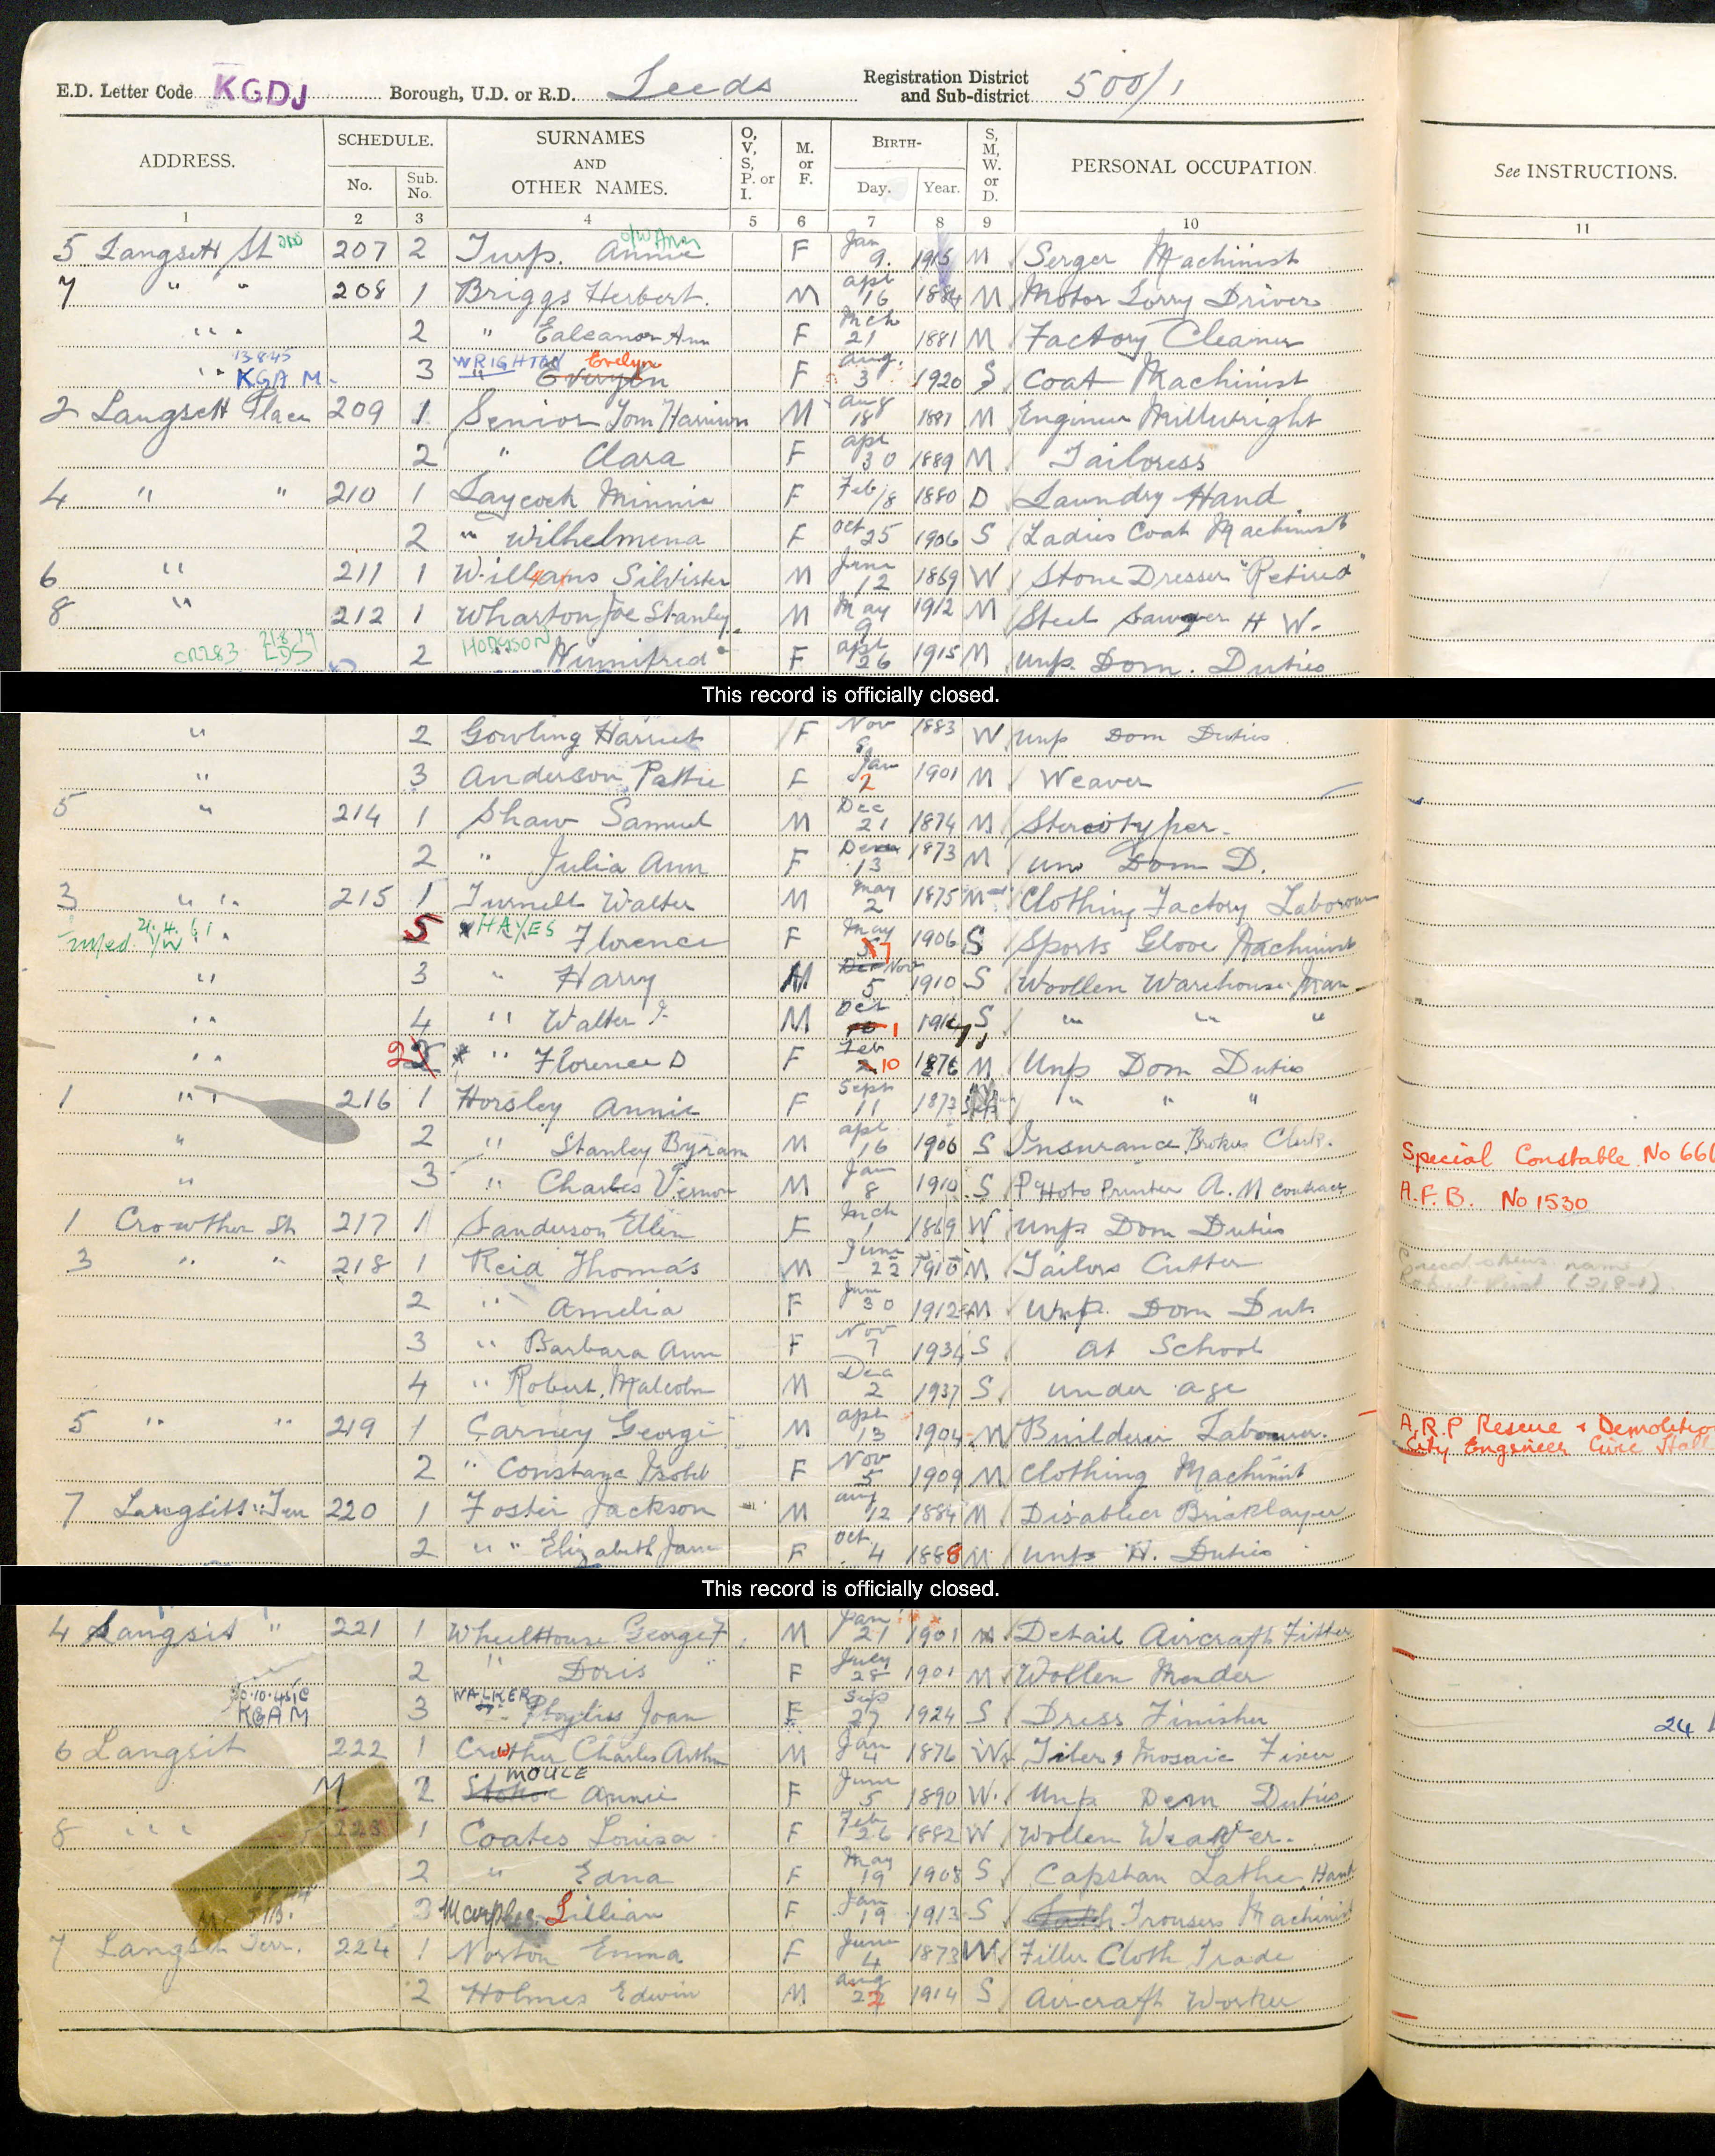 E.D. Letter Code KGDJ Borough, U.D. or R.D. Leeds Registration District and Sub-district 500/1
ADDRESS. SCHEDULE. No. Sub. No. SURNAMES AND OTHER NAMES. O, V, S, P. or I. M. or F. BIRTH- Day. Year. S, M, W. or D. PERSONAL OCCUPATION. See INSTRUCTIONS.
1 2 3 4 5 6 7 8 9 10 11
5 Langsett St 207 2 Turp. Annie F Jan 9. 1915 M Serger Machinist
7 " " 208 1 Briggs Herbert. M apl 16 1884 M Motor Lorry Driver
" " 2 " Ealeanor Ann F Mch 21 1881 M Factory Cleaner
13.8.45 WRIGHTON Evelyn
" KGA M 3 " F aug. 3 1920 S Coat Machinist
2 Langsett Place 209 1 Senior Tom Harrison M aug 18 1881 M Engineer Millwright
2 " Clara F apl 30 1889 M Tailoress
4 " " 210 1 Laycock Minnie F Feb 18 1880 D Laundry Hand
2 " Wilhelmena F Oct 25 1906 S Ladies Coat Machinist
6 " 211 1 Williams Silvister M June 12 1869 W Stone Dresser "Retired"
8 " 212 1 Wharton Joe Stanley. M May 9 1912 M Steel Sawyer H W.
CR283 21.8.  LDS 2 HODGSON Winnifred F apl 26 1915 M Unp. Dom. Duties
This record is officially closed.
" 2 Gowling Harriet F Nov 8. 1883 W Unp Dom Duties
" 3 Anderson Pattie F Jan 2 1901 M Weaver
5 " 214 1 Shaw Samuel M Dec 21 1874 M Stereotyper.
2 " Julia Ann F 13 1873 M un Dom D.
3 " " 215 1 Turnell Walter M May 2 1875 M Clothing Factory Laborour
" 5 HAYES Florence F May 1906 S Sports Glove Machinist
" 3 " Harry M Nov 5 1910 S Woollen Warehouse Man
" 4 " Walter M Oct 1 1914 S " " "
" 2 " Florence D F Feb 10 1876 M Unp Dom Duties
1 " 216 1 Horsley Annie F Sept 11 1873 " " "
" 2 " Stanley Byram M apl. 16 1906 S Insurance Brokers Clerk. Special Constable No 666
" 3 " Charles Vernon M Jan 8 1910 S Photo Printer A. M contract A.F.B. No 1530
1 Crowther St 217 1 Sanderson Ellen F Mch 1 1869 W Unp Dom Duties
3 " " 218 1 Reid Thomas M June 22 1910 M Tailors Cutter
2 " Amelia F June 30 1912 M Unp. Dom Dut.
3 " Barbara Ann F Nov 7 1934 S at School
4 " Robert Malcolm M Dec 2 1937 S under age
5 " " 219 1 Carney George M apl 13 1904 M Builders Labourer. A.R.P Rescue & Demolition City Engineer Civic Hall
2 " Constance Isobel F Nov 5 1909 M Clothing Machinist
7 Langsitt Terr 220 1 Foster Jackson M aug 12 1884 M Disabled Bricklayer
2 " " Elizabeth Jane F oct. 4 1888 M Unp H. Duties
This record is officially closed.
4 Langsit " 221 1 WheelHouse George F. M Jan 21 1901 M Detail Aircraft Fitter
2 " Doris F July 28 1901 M Wollen Mender
KGAM 3 WALKER Phyliss Joan F Sep 27 1924 S Dress Finisher 24
6 Langsit 222 1 Crowther Charles Arthur M Jan 4 1876 W Tiler & Mosaic Fixer
M 2 MOULE Annie F June 5 1890 W. Unp Dom Duties
8 " " 223 1 Coates Louisa F Feb 26 1882 W Wollen Weaver.
2 " Edna F May 19 1908 S Capstan Lathe Hand
3 Lillian F Jan 19 1913 S Trousers Machinist
7 Langsit Terr. 224 1 Norton Emma F June 4 1873 W Filler Cloth Trade
2 Holmes Edwin M aug 22 1914 S Aircraft Worker